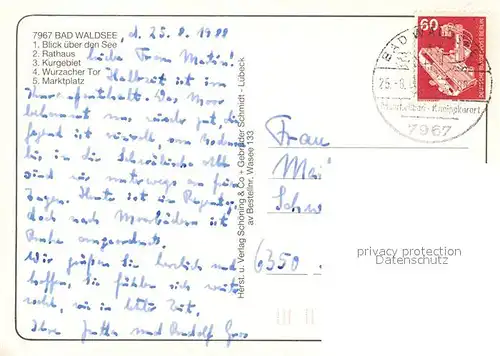 7967 BAD WALDSEE, d. 25.8.1988
1. Blick über den See
2. Rathaus
3. Kurgebiet
4. Wurzacher Tor
5. Marktplatz
Liebe Frau
Halbzeit ist im
Kuraufenthalt. Das Moor
bekommt uns wieder gut, die
Gegend ist reizvoll, vom Bodensee
bis in die Schwäbische Alb
sind wir unterwegs an freien
Tagen. Heute ist ein Regentag,
doch nach Moorbädern ist
Ruhe angeordnet.
Wir grüßen Sie herzlich und
hoffen, Sie fühlen sich weiter
recht, wie in letzter Zeit.
Ihre Jutta und Rudolf
Herst. u. Verlag Schöning & Co + Gebrüder Schmidt - Lübeck
av Bestellnr. Wasee 133
60
DEUTSCHE BUNDESPOST BERLIN
BAD WAL
25.-8.
Moorheilbad - Kneippkurort
7967
Frau
Mai
Schw
6350
privacy protection
Datenschutz